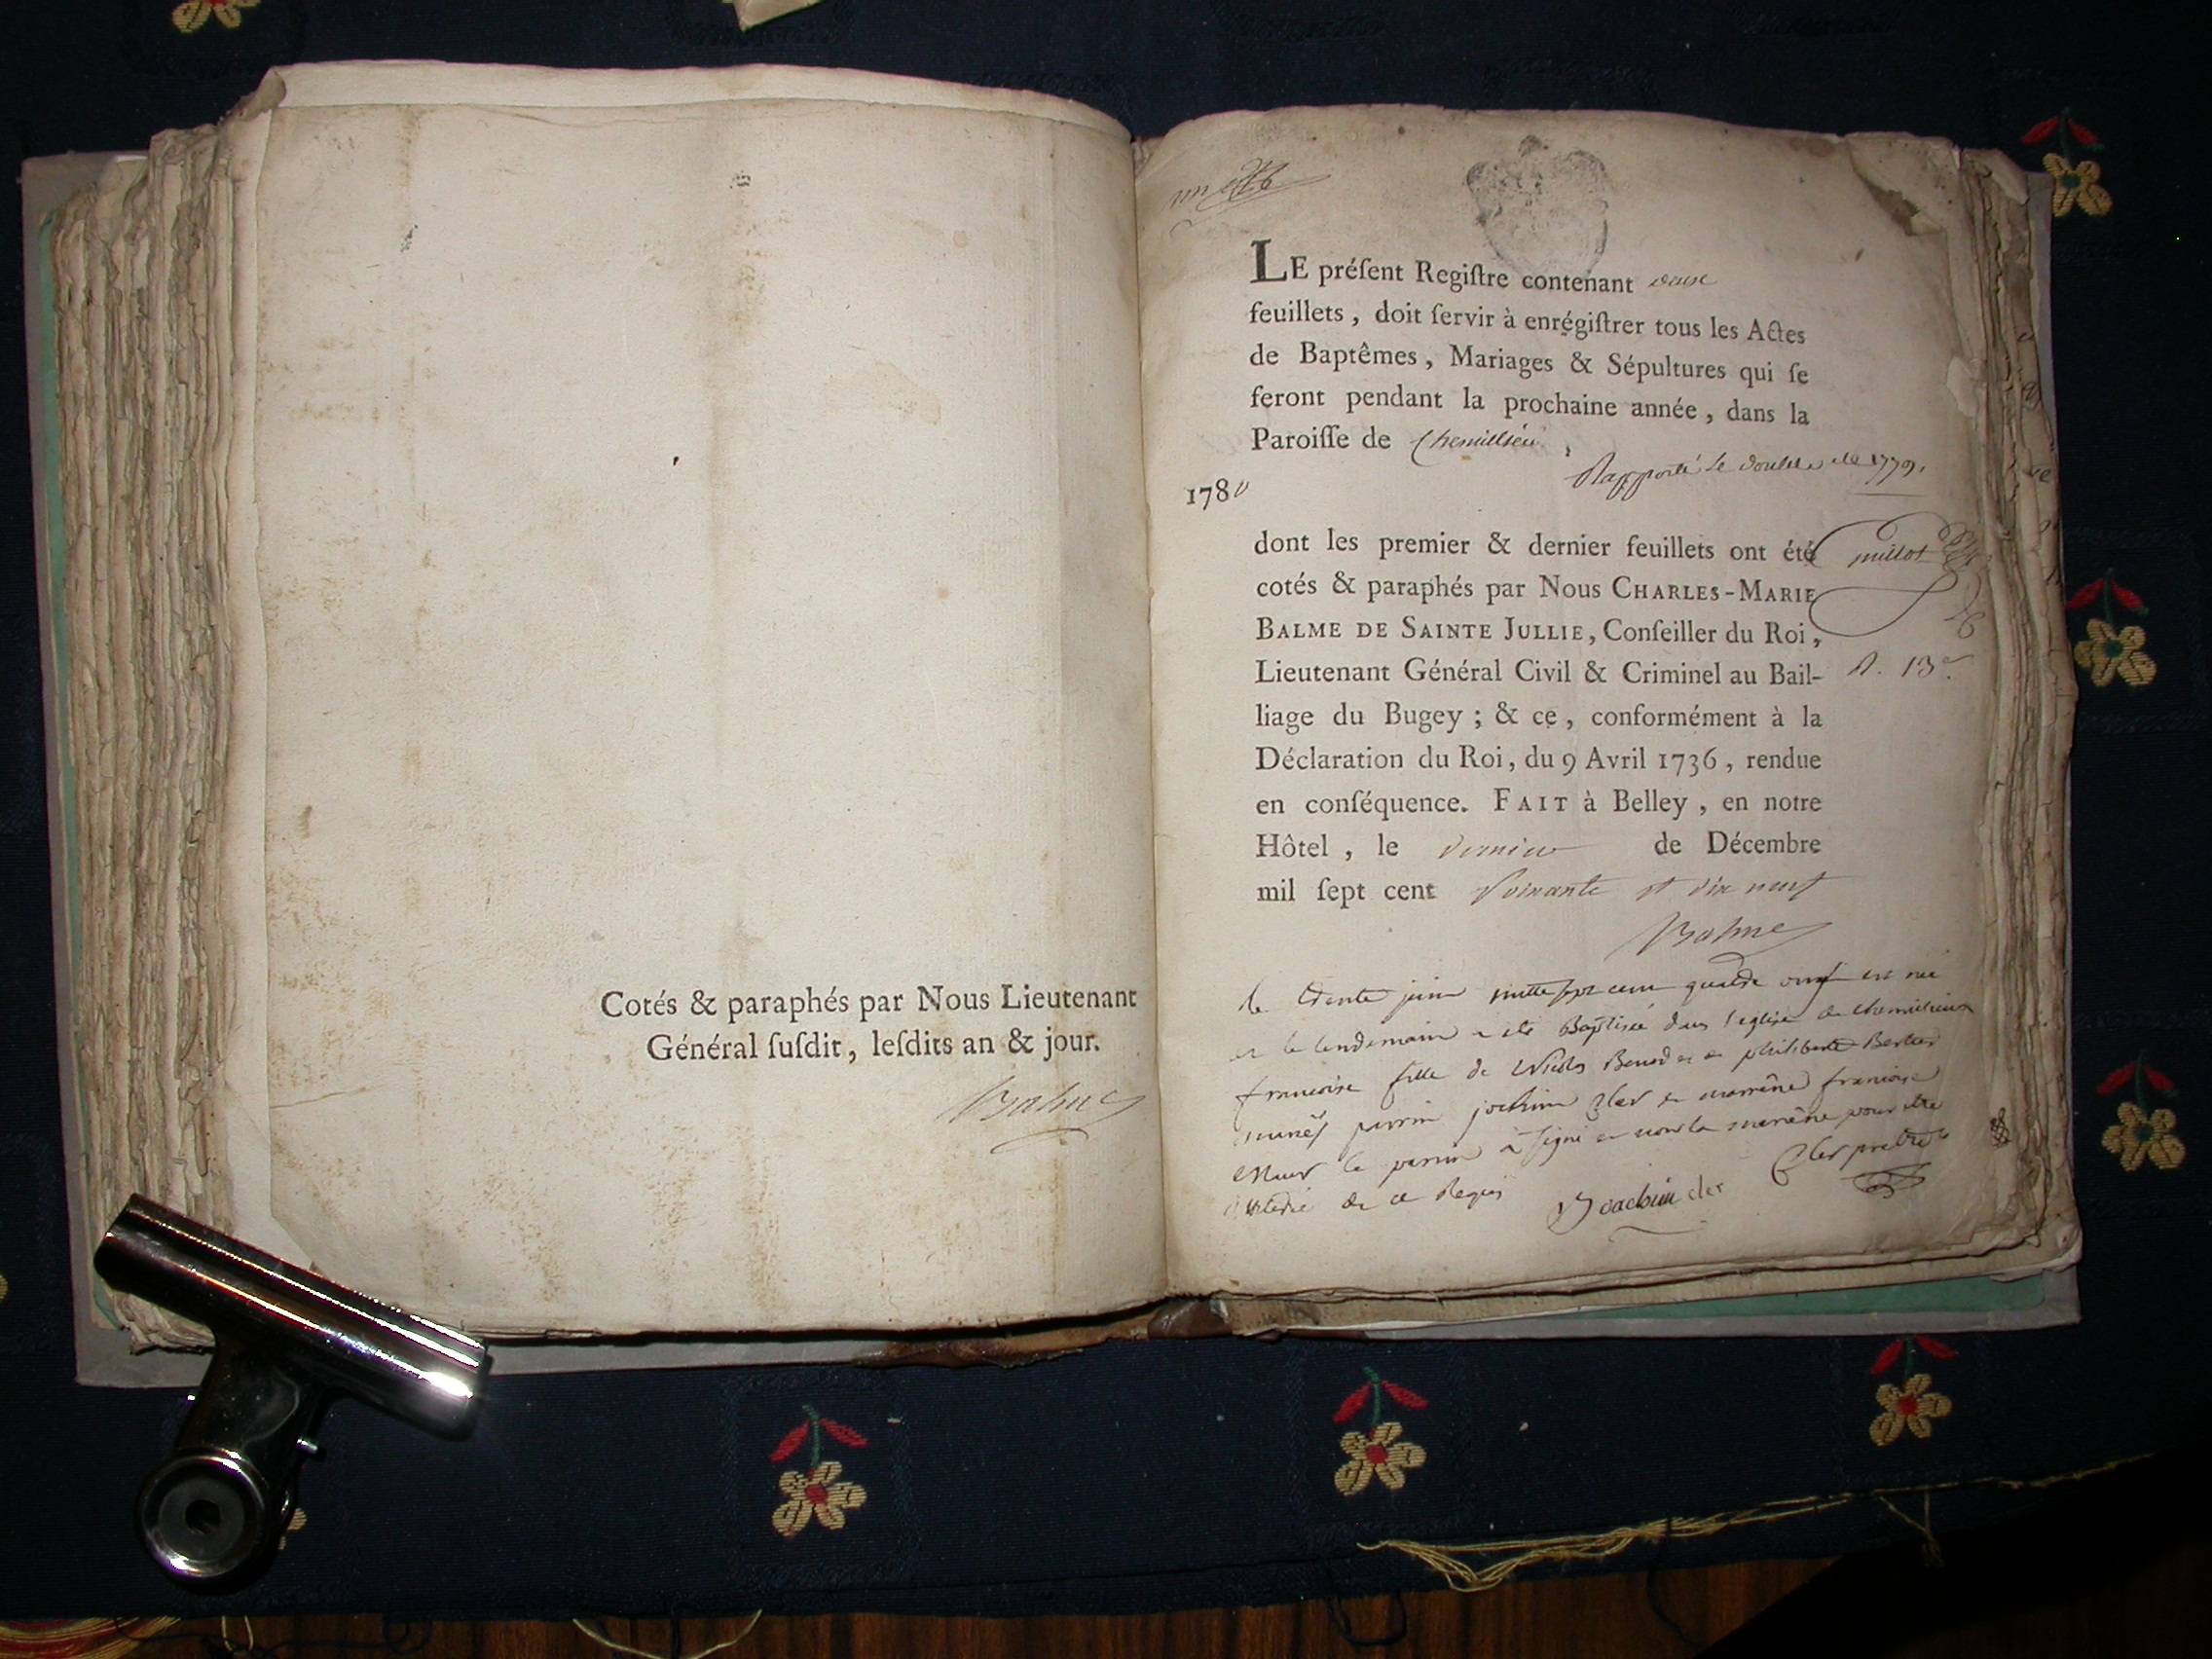 Cotés & paraphés par Nous Lieutenant
Général ſuſdit, leſdits an & jour.
Balme
LE préſent Regiſtre contenant deux
feuillets, doit ſervir à enrégiſtrer tous les Actes
de Baptêmes, Mariages & Sépultures qui ſe
feront pendant la prochaine année, dans la
Paroiſſe de Chemillieu,
Rapporté le double de 1779.
1780
dont les premier & dernier feuillets ont été
millot
cotés & paraphés par Nous CHARLES-MARIE
BALME DE SAINTE JULLIE, Conſeiller du Roi,
Lieutenant Général Civil & Criminel au Bail-
liage du Bugey; & ce, conformément à la
Déclaration du Roi, du 9 Avril 1736, rendue
en conſéquence. FAIT à Belley, en notre
Hôtel, le dernier de Décembre
mil ſept cent soixante et dix neuf
Balme
le trente juin mille sept cent quatre est née
et le lendemain a été Baptisée dans l'eglise de chemillieux
francoise fille de et philiberte
mariés parrin joachim cler et marrène francoise
le parrin a signé et non la marrène pour etre
de ce Requis
Joachim cler
Cler pretre